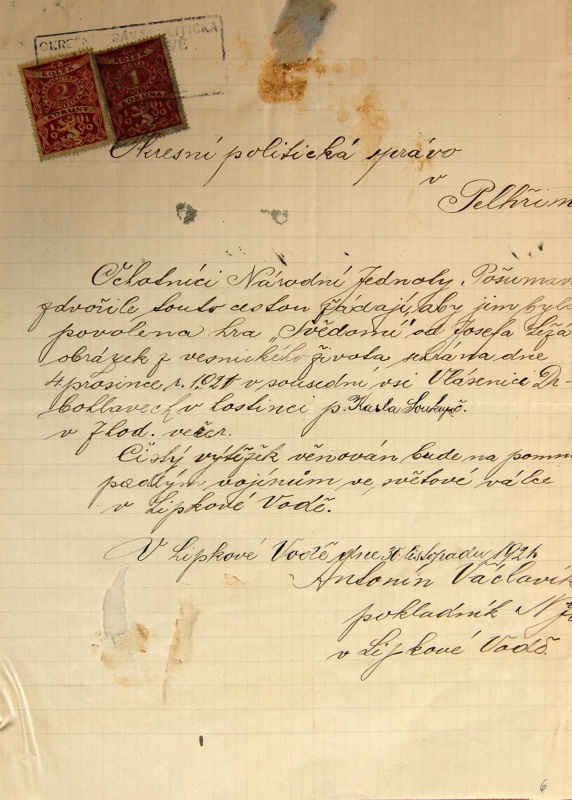 OKRESNÍ SPRÁVA POLITICKÁ
KOLEK
2
KORUNY
KOLEK
1
KORUNA
Okresní politická správo
v
Pelhřim
Ochotníci Národní Jednoty Pošumav
zdvořile touto cestou žádají, aby jim byla
povolena hra „Svědomí" od Josefa
obrázek z vesnického života sehrána dne
4 prosince r. 1921 v sousední vsi Vlásenici Dr-
bohlavech v hostinci p. Karla
v 7 hod. večer.
Čistý výtěžek věnován bude na pomn
padlým vojínům ve světové válce
v Lipkové Vodě.
V Lipkové Vodě dne 30. listopadu 1921
Antonín Václavík
pokladník N J
v Lipkové Vodě.
6